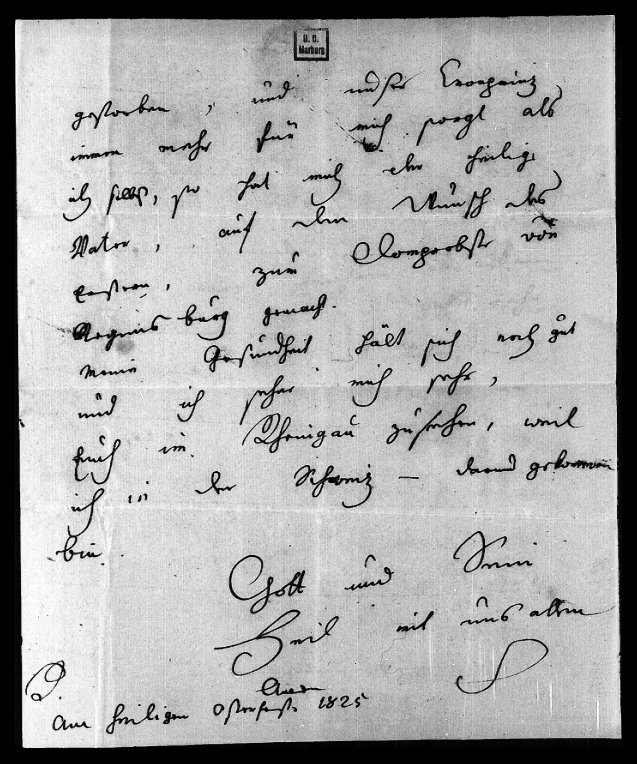 U. B.
Marburg
gestorben, und unser Cronprinz,
immer mehr für mich sorgt als
ich selbst, so hat mich der heilige
Vater, auf den Wunsch des
ersteren, zum Domprobste von
Regensburg gemacht.
Meine Gesundheit hält sich noch gut
und ich sehne mich sehr,
Euch im Rheingau zu sehen, weil
ich in der Schweiz — gekommen
bin.
Gott und Sein
Heil mit uns allen
Am heiligen Osterfeste 1825